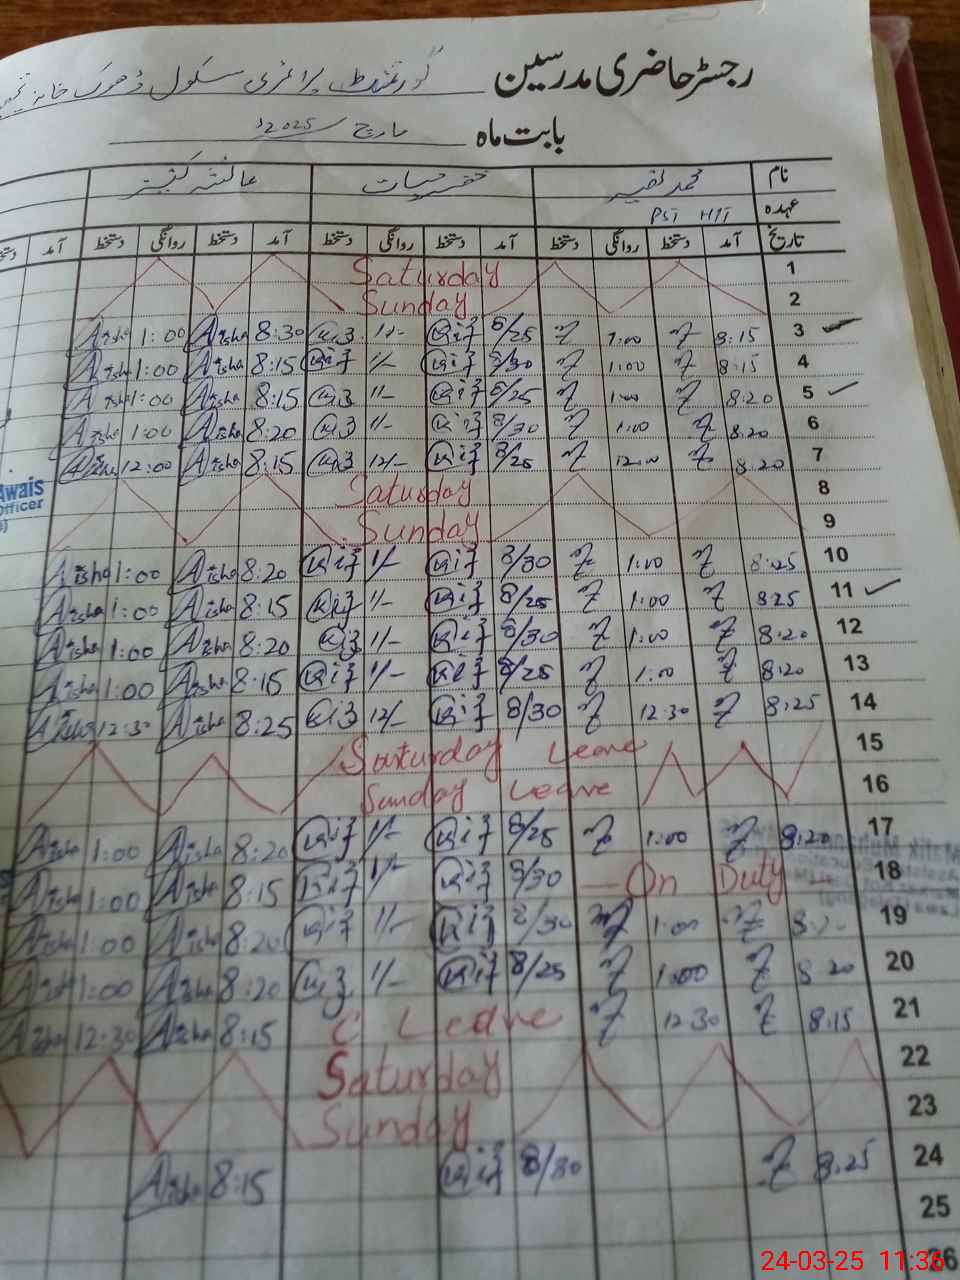 رجسٹر حاضری مدرسین گورنمنٹ پرائمری سکول ڈھوک
بابت ماہ مارچ 2025ء
نام محمد نصیر خضر حیات عائشہ کنیز
عہدہ PST HT
تاریخ آمد دستخط روانگی دستخط آمد دستخط روانگی دستخط آمد دستخط روانگی دستخط آمد
Saturday 1
Sunday 2
Aisha 1:00 Aisha 8:30 1/- 8/25 1:00 8:15 3
Aisha 1:00 Aisha 8:15 1/- 8/30 1:00 8:15 4
Aisha 1:00 Aisha 8:15 1/- 8/25 1:00 8:20 5
Aisha 1:00 Aisha 8:20 1/- 8/30 1:00 8:20 6
Aisha 12:00 Aisha 8:15 12/- 8/25 12:00 8:20 7
Awais
Officer
Saturday 8
Sunday 9
Aisha 1:00 Aisha 8:20 1/- 8/30 1:00 8:25 10
Aisha 1:00 Aisha 8:15 1/- 8/25 1:00 8:25 11
Aisha 1:00 Aisha 8:20 1/- 8/30 1:00 8:20 12
Aisha 1:00 Aisha 8:15 1/- 8/25 1:00 8:20 13
Aisha 12:30 Aisha 8:25 12/- 8/30 12:30 8:25 14
Saturday Leave 15
Sunday Leave 16
Aisha 1:00 Aisha 8:20 1/- 8/25 1:00 8:20 17
Aisha 1:00 Aisha 8:15 1/- 8/30 On Duty 18
Aisha 1:00 Aisha 8:20 1/- 8/30 1:00 19
Aisha 1:00 Aisha 8:20 1/- 8/25 1:00 8:20 20
Aisha 12:30 Aisha 8:15 C Leave 12:30 8:15 21
Saturday 22
Sunday 23
Aisha 8:15 8/30 8:25 24
25
26
24-03-25 11:36